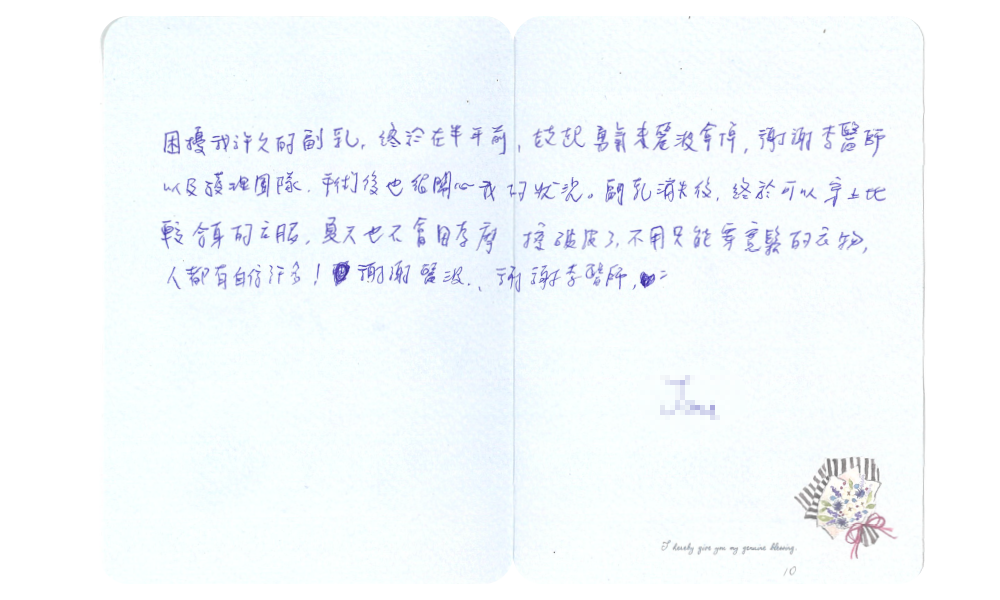 困擾我許久的副乳，終於在半年前，鼓起勇氣來麗波拿掉，謝謝李醫師
以及護理團隊，手術後也很關心我的狀況。副乳消失後，終於可以穿上比
較合身的衣服，夏天也不會因為摩擦破皮了，不用只能穿寬鬆的衣物，
人都有自信許多！謝謝麗波、謝謝李醫師，
I hereby give you my genuine blessing.
10